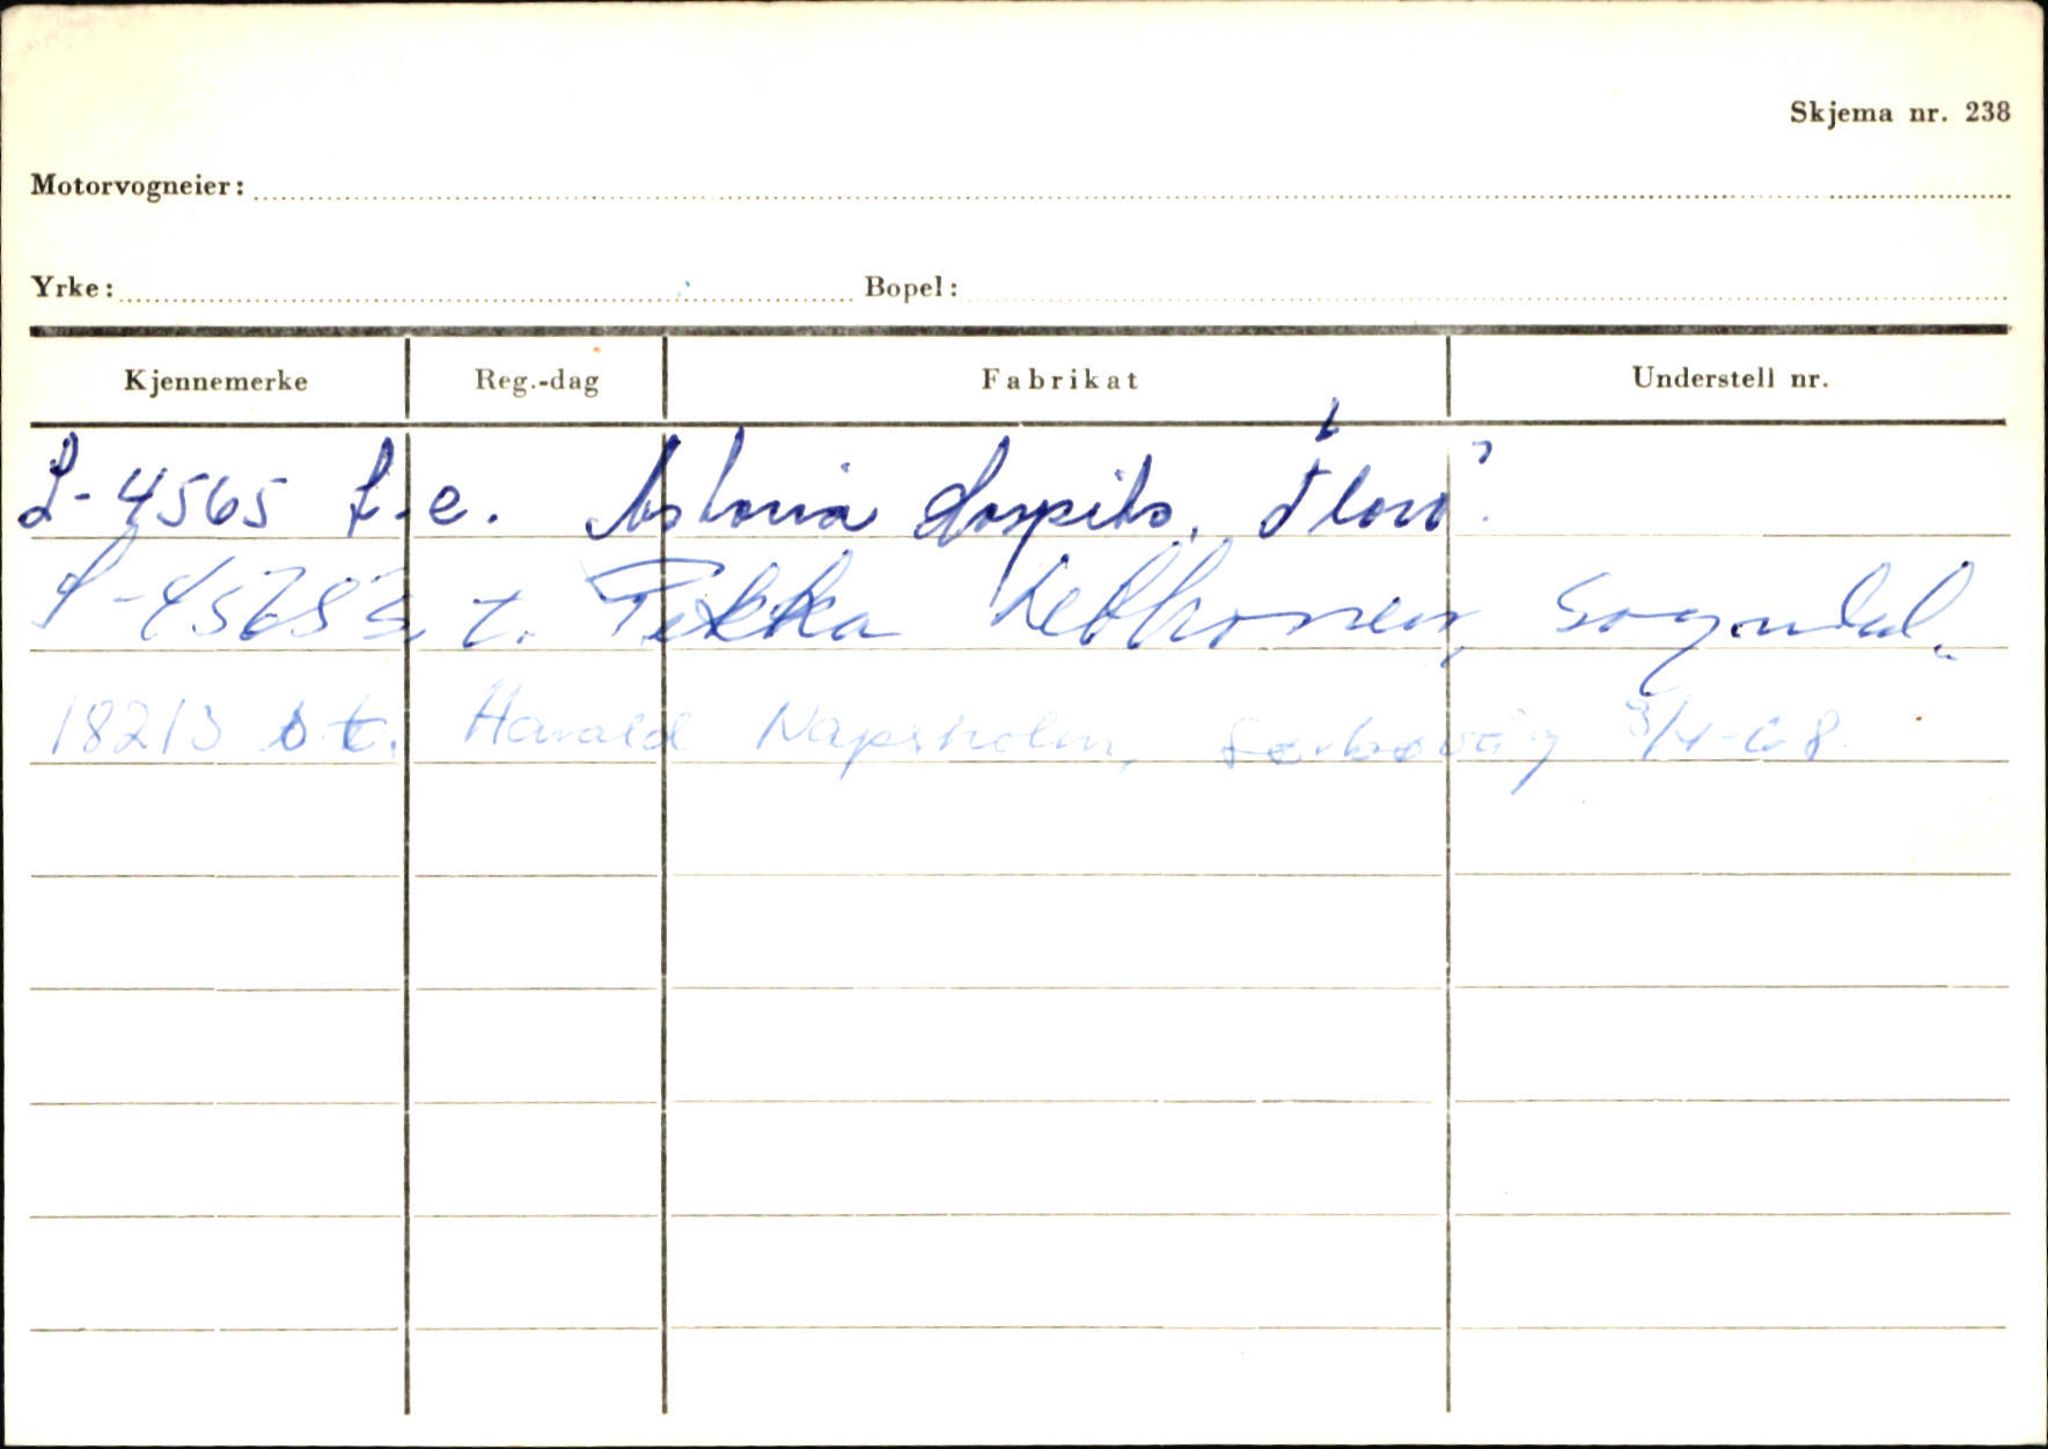 Skjema nr. 238
Motorvogneier:
Yrke: Bopel:
Kjennemerke Reg.-dag Fabrikat Understell nr.
L-4565 f.e. Astoria Hospits, Florø.
t. Pekka Sogndal.
18213 t. Harald Napsholm, 3/4-68.